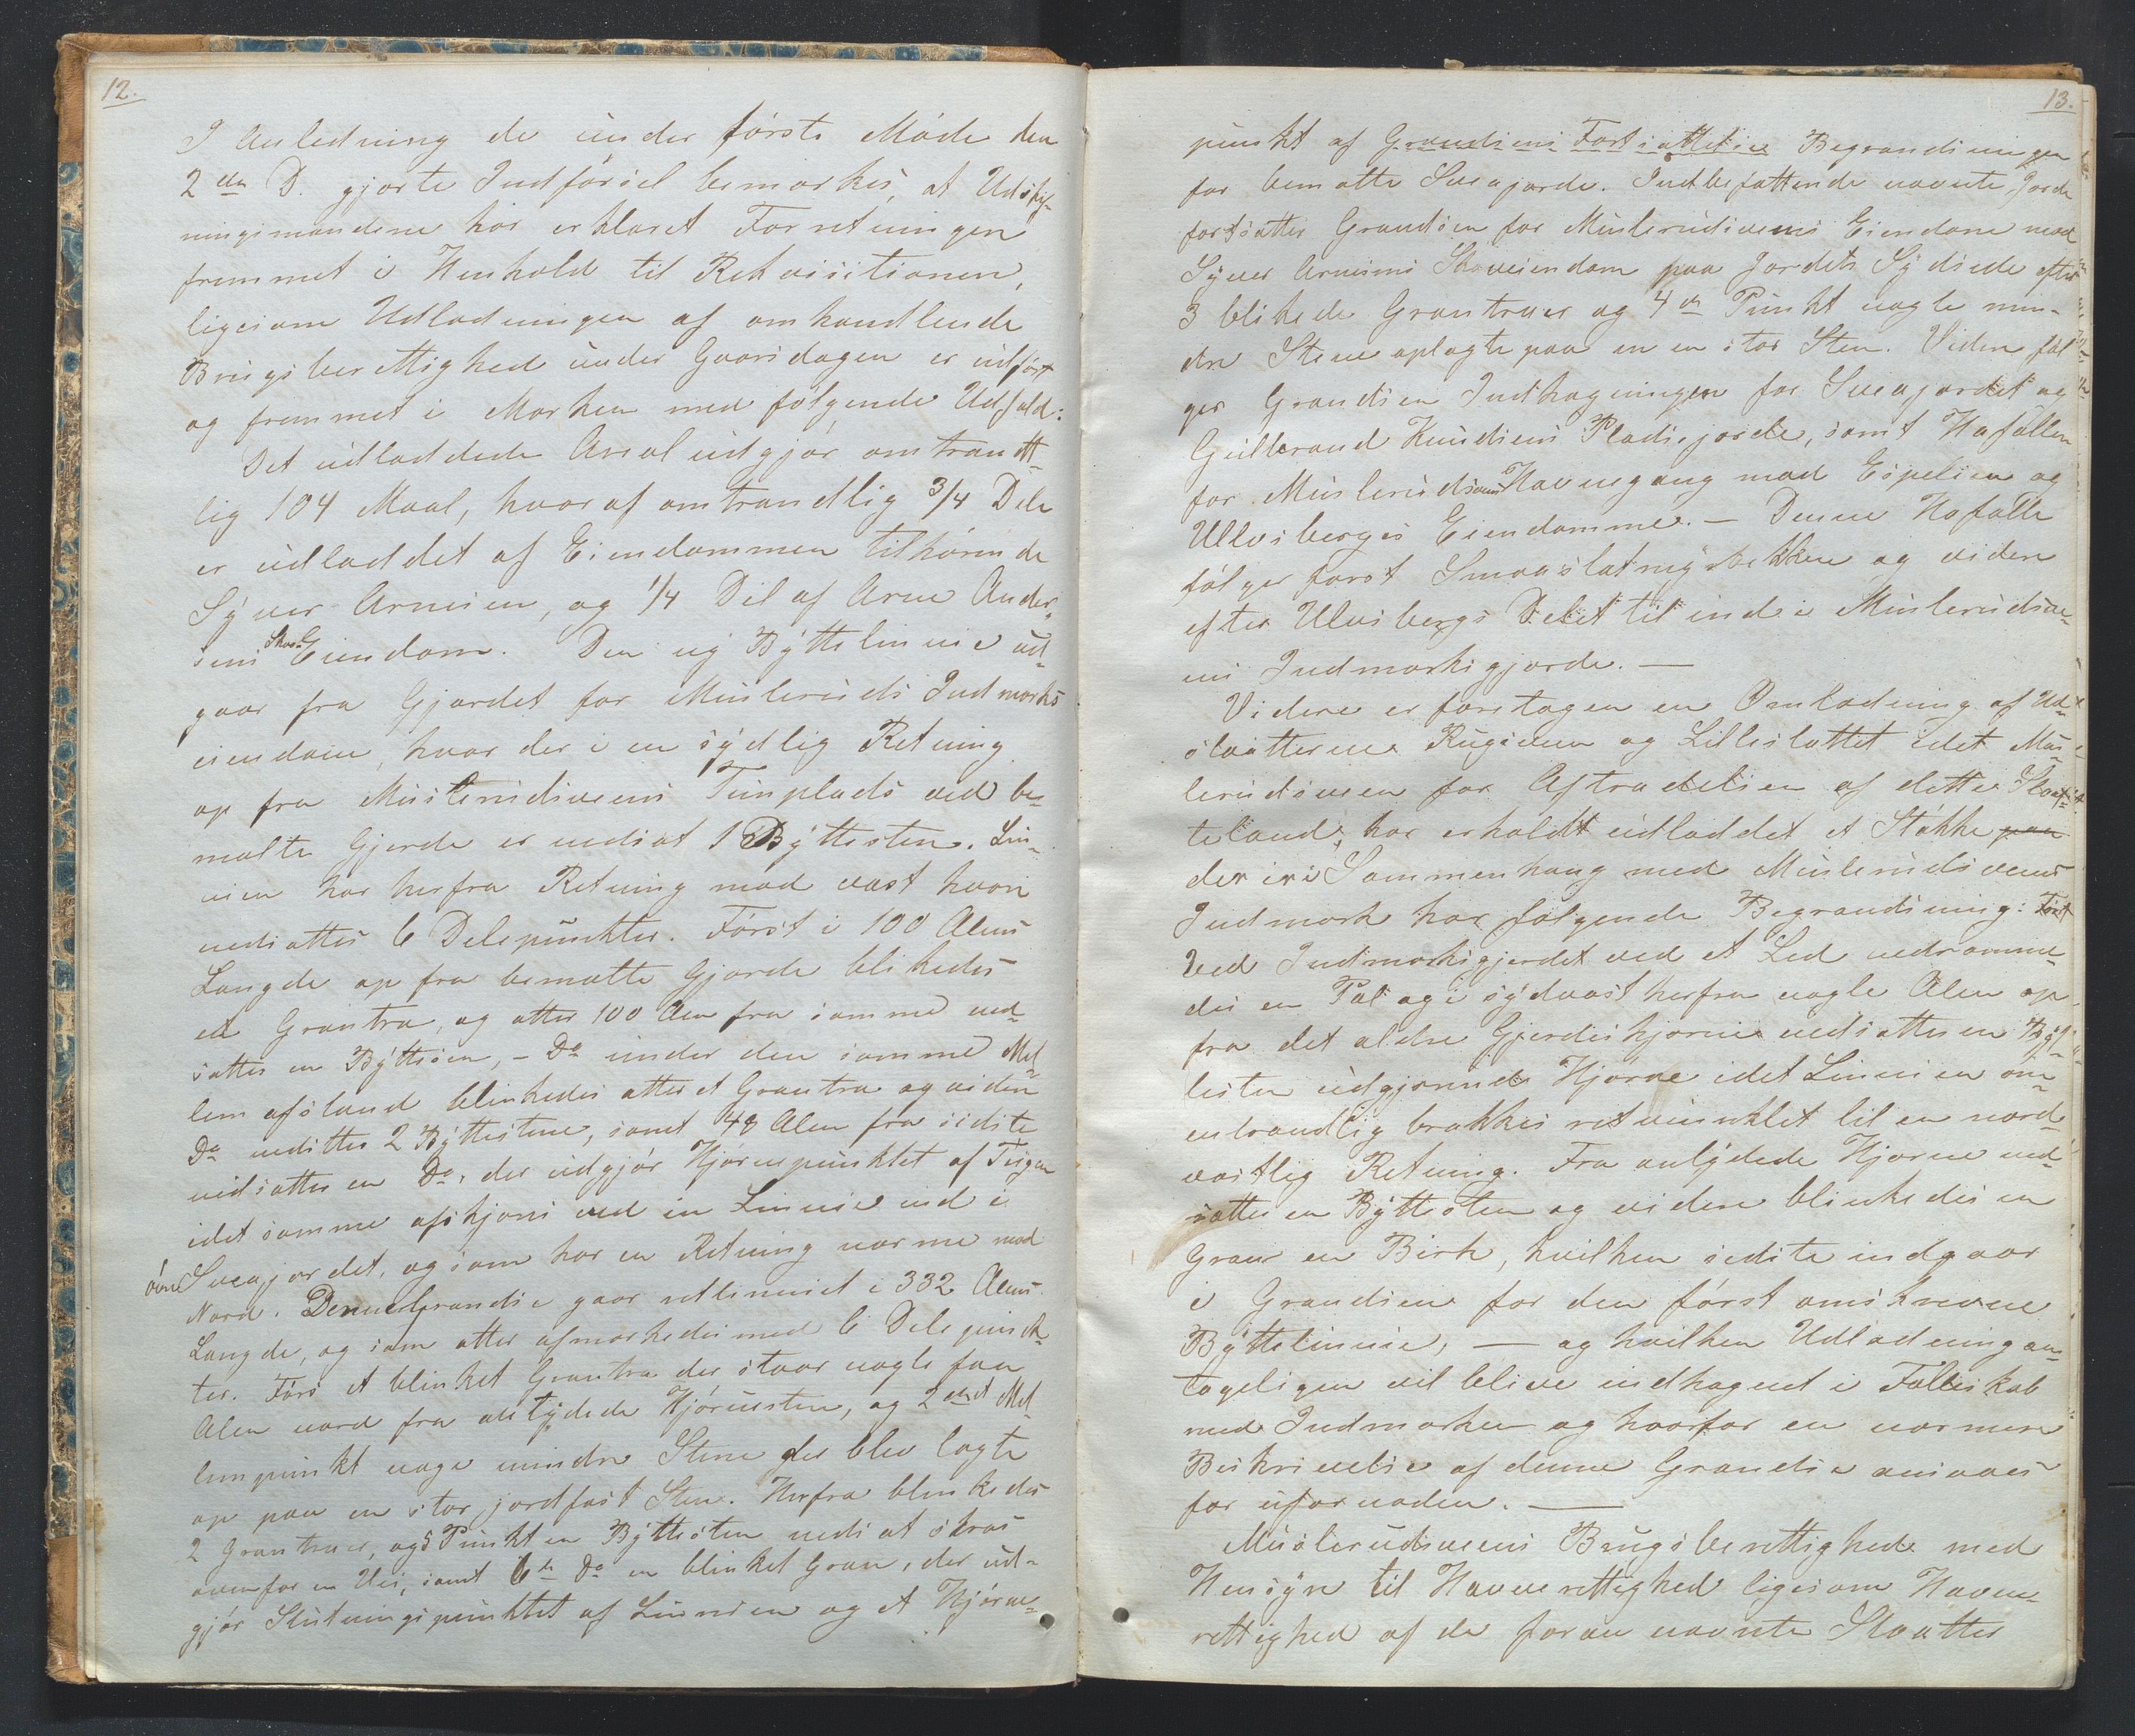 12.
I Anledning de under første Møde den
2den D. gjorte Indførsel bemærkes, at Udskif-
ningsmændene har erklæret Forretningen
fremmet i Henhold til Rekvisitionen,
ligesom Udlodningen af omhandlende
Brugsberettighed under Gaarsdagen er udført
og fremmet i Marken med følgende Udfald:
Det udloddede Areal udgjør omtrendt-
lig 104 Maal, hvoraf omtrændlig 3/4 Dele
er udloddet af Eiendommen tilhørende
Syver Arnesen, og 1/4 Del af Arne Ander-
sens Skov-Eiendom. Den ny Byttelinnie ud-
gaar fra Gjærdet for Musleruds Indmarks
eiendom, hvor der i en sydlig Retning
op fra Muslerudsveens Tunplads ved be-
mælte Gjerde er nedsat 1 Byttesten. Lin-
nien har herfra Retning mod vest hvori
nedsattes 6 Delepunkter. Først i 100 Alens
Længde op fra bemælte Gjærde blikedes
et Grantræ, og atter 100 Alen fra samme ned-
sattes en Byttesen, - Do under den samme Mel-
lemafstand blinkedes atter et Grantræ og viden
Do nedsittes 2 Byttestene, samt 48 Alen fra sidste
nedsattes en Do, der udgjør Hjørnepunktet af Teigen
idet samme afskjæres ved en Linnie ind i
øvre Sveajordet, og som har en Retning nærme mod
Nord. Denne Grændse gaar retlinniet i 332 Alens
Længde, og som atter afmærkedes med 6 Delepunk-
ter. Førs et blinket Grantræ der staar nogle faa
Alen nord fra antydede Hjørnesten, og 2det Mel-
lempunkt noge mindre Stene der blev lagte
op paa en stor jordfast Sten. Herfra blinkedes
2 Grantræer, og 5 Punkt en Byttesten nedsat skraas
ovenfor en Vei, samt 6te Do en blinket Gran, der ud-
gjør Slutningspunktet af Linnien og et Hjørne-
13.
punkt af Grændsens Fortsættelse Begrændsningen
for bemælte Sveajorde. Indbefattende nævnte Jorde
fortsætter Grændsen for Muslerudsveens Eiendom mod
Syver Arnesens Skoveiendom paa Jordets Sydside efter
3 blikede Grantræer og 4de Punkt nogle min-
dre Stene oplagte paa en en stor Sten. Viden føl
ger Grændsen Indhegningen for Sveajordet og
Gulbrand Knudsens Pladsejorde, samt Hafallen
for Muslerudsveens Havnegang mod Espelien og
Ullvsbergs Eiendomme. — Denne Hafalle
følger først Smaaslatnigsbekken og viden
efter Ulvsbergs Delet til ind i Muslerudsve-
ns Indmarksgjærde. —
Videre er foretagen en Omlodning af Ud-
slaatterne Rugsveen og Lilleslættet idet Mus-
lerudsveen for Aftrædelsen af dette Slaat-
teland, har erholdt udloddet et Støkke paa
der er i Sammenhæng med Muslerudsveens
Indmark har følgende Begrændsning: Først
Ved Indmarksgjerdet ved et Led nedramme-
des en Pæl og i sydvest herfra nogle Alen op
fra det ældre Gjerdeshjørne nedsattes en Byt-
testen udgjørende Hjørne idet Linnien om-
entrændlig brækkes retvinklet til en nord-
vestlig Retning. Fra anlydede Hjørne ned-
sattes en Byttesten og videre blinkedes en
Gran en Birk, hvilken sidste indgaar
i Grændsen for den først omskrevne
Byttelinnie, — og hvilken Udlodning an-
tageligen vil blive indhegnet i Fælleskab
med Indmarken og hvorfor en nærmere
Beskrivelse af denne Grændse ansaaes
for ufornøden. —
Muslerudsveens Brugsberettighed med
Hensyn til Havnerettighed ligesom Havne-
rettighed af de foran nævnte Slaatter